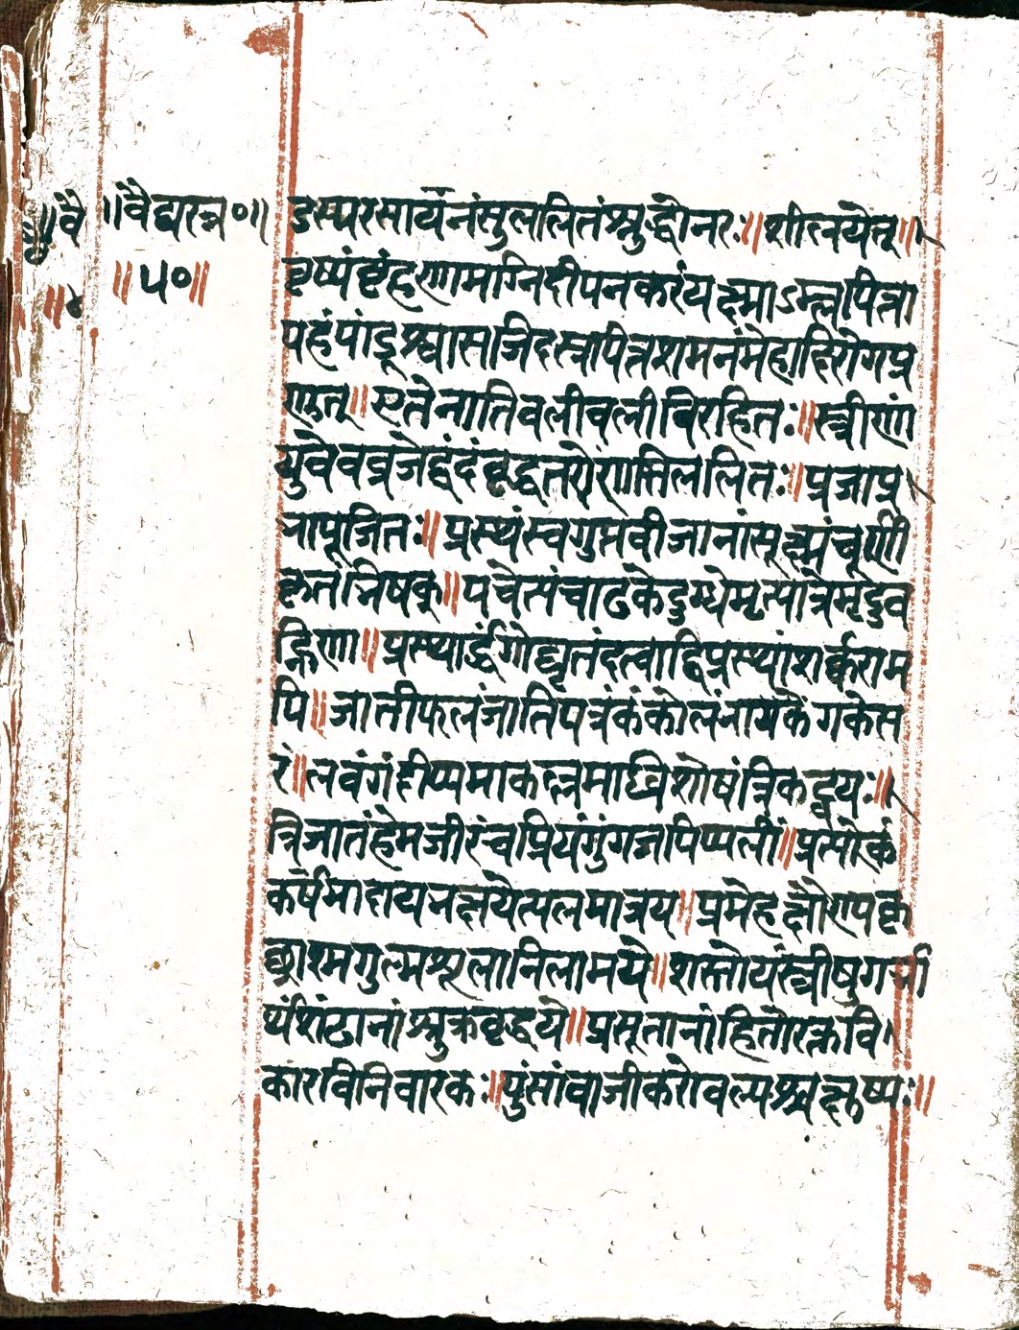 ॥वै ॥वैद्यरत्न०॥ डस्यरसायनंसुललितंशुद्धोनरः॥शीलयेत्॥
॥५०॥ वृष्यंवृंहणमग्निदीपनकरंयक्ष्माऽम्लपित्ता
पहंपांडूश्वासजिदस्त्रपित्तशमनंमेहादिरोगप्र
णुत्॥एतेनातिवलीवलीविरहितः॥स्त्रीणां
युवेवव्रजेद्वृंदंवृद्धतरोरणातिललितः॥प्रजाप्र
जापूजितः॥प्रस्थंस्वगुप्तवीजानांसूक्ष्मंचूर्णी
कृतंभिषक्॥पचेत्पंचाढकेदुग्धेमृत्पात्रेमृदुव
ह्निणा॥प्रस्थार्द्धंगोघृतंदत्वाद्विप्रस्थांशर्करांम
पि॥जातीफलंजातिपत्रंकंकोलंनायकेंगकेस
रं॥लवंगंदीप्यमाकल्लमाब्धिशोषंत्रिकटुयः॥
त्रिजातंहेमजीरंचप्रियंगुंगजपिप्पलीं॥प्रत्येकं
कर्षमादायभक्षयेत्पलमात्रय॥प्रमेहक्षीणपकृ
च्छ्राश्मगुल्मशूलानिलामये॥शस्तोयंस्त्रीषुगर्भी
र्थंशंठानांशुक्रवृद्धये॥प्रसूतानांहितोरक्तवि
कारविनिवारकः॥पुंसांवाजीकरोवल्यश्चक्षुष्यः॥